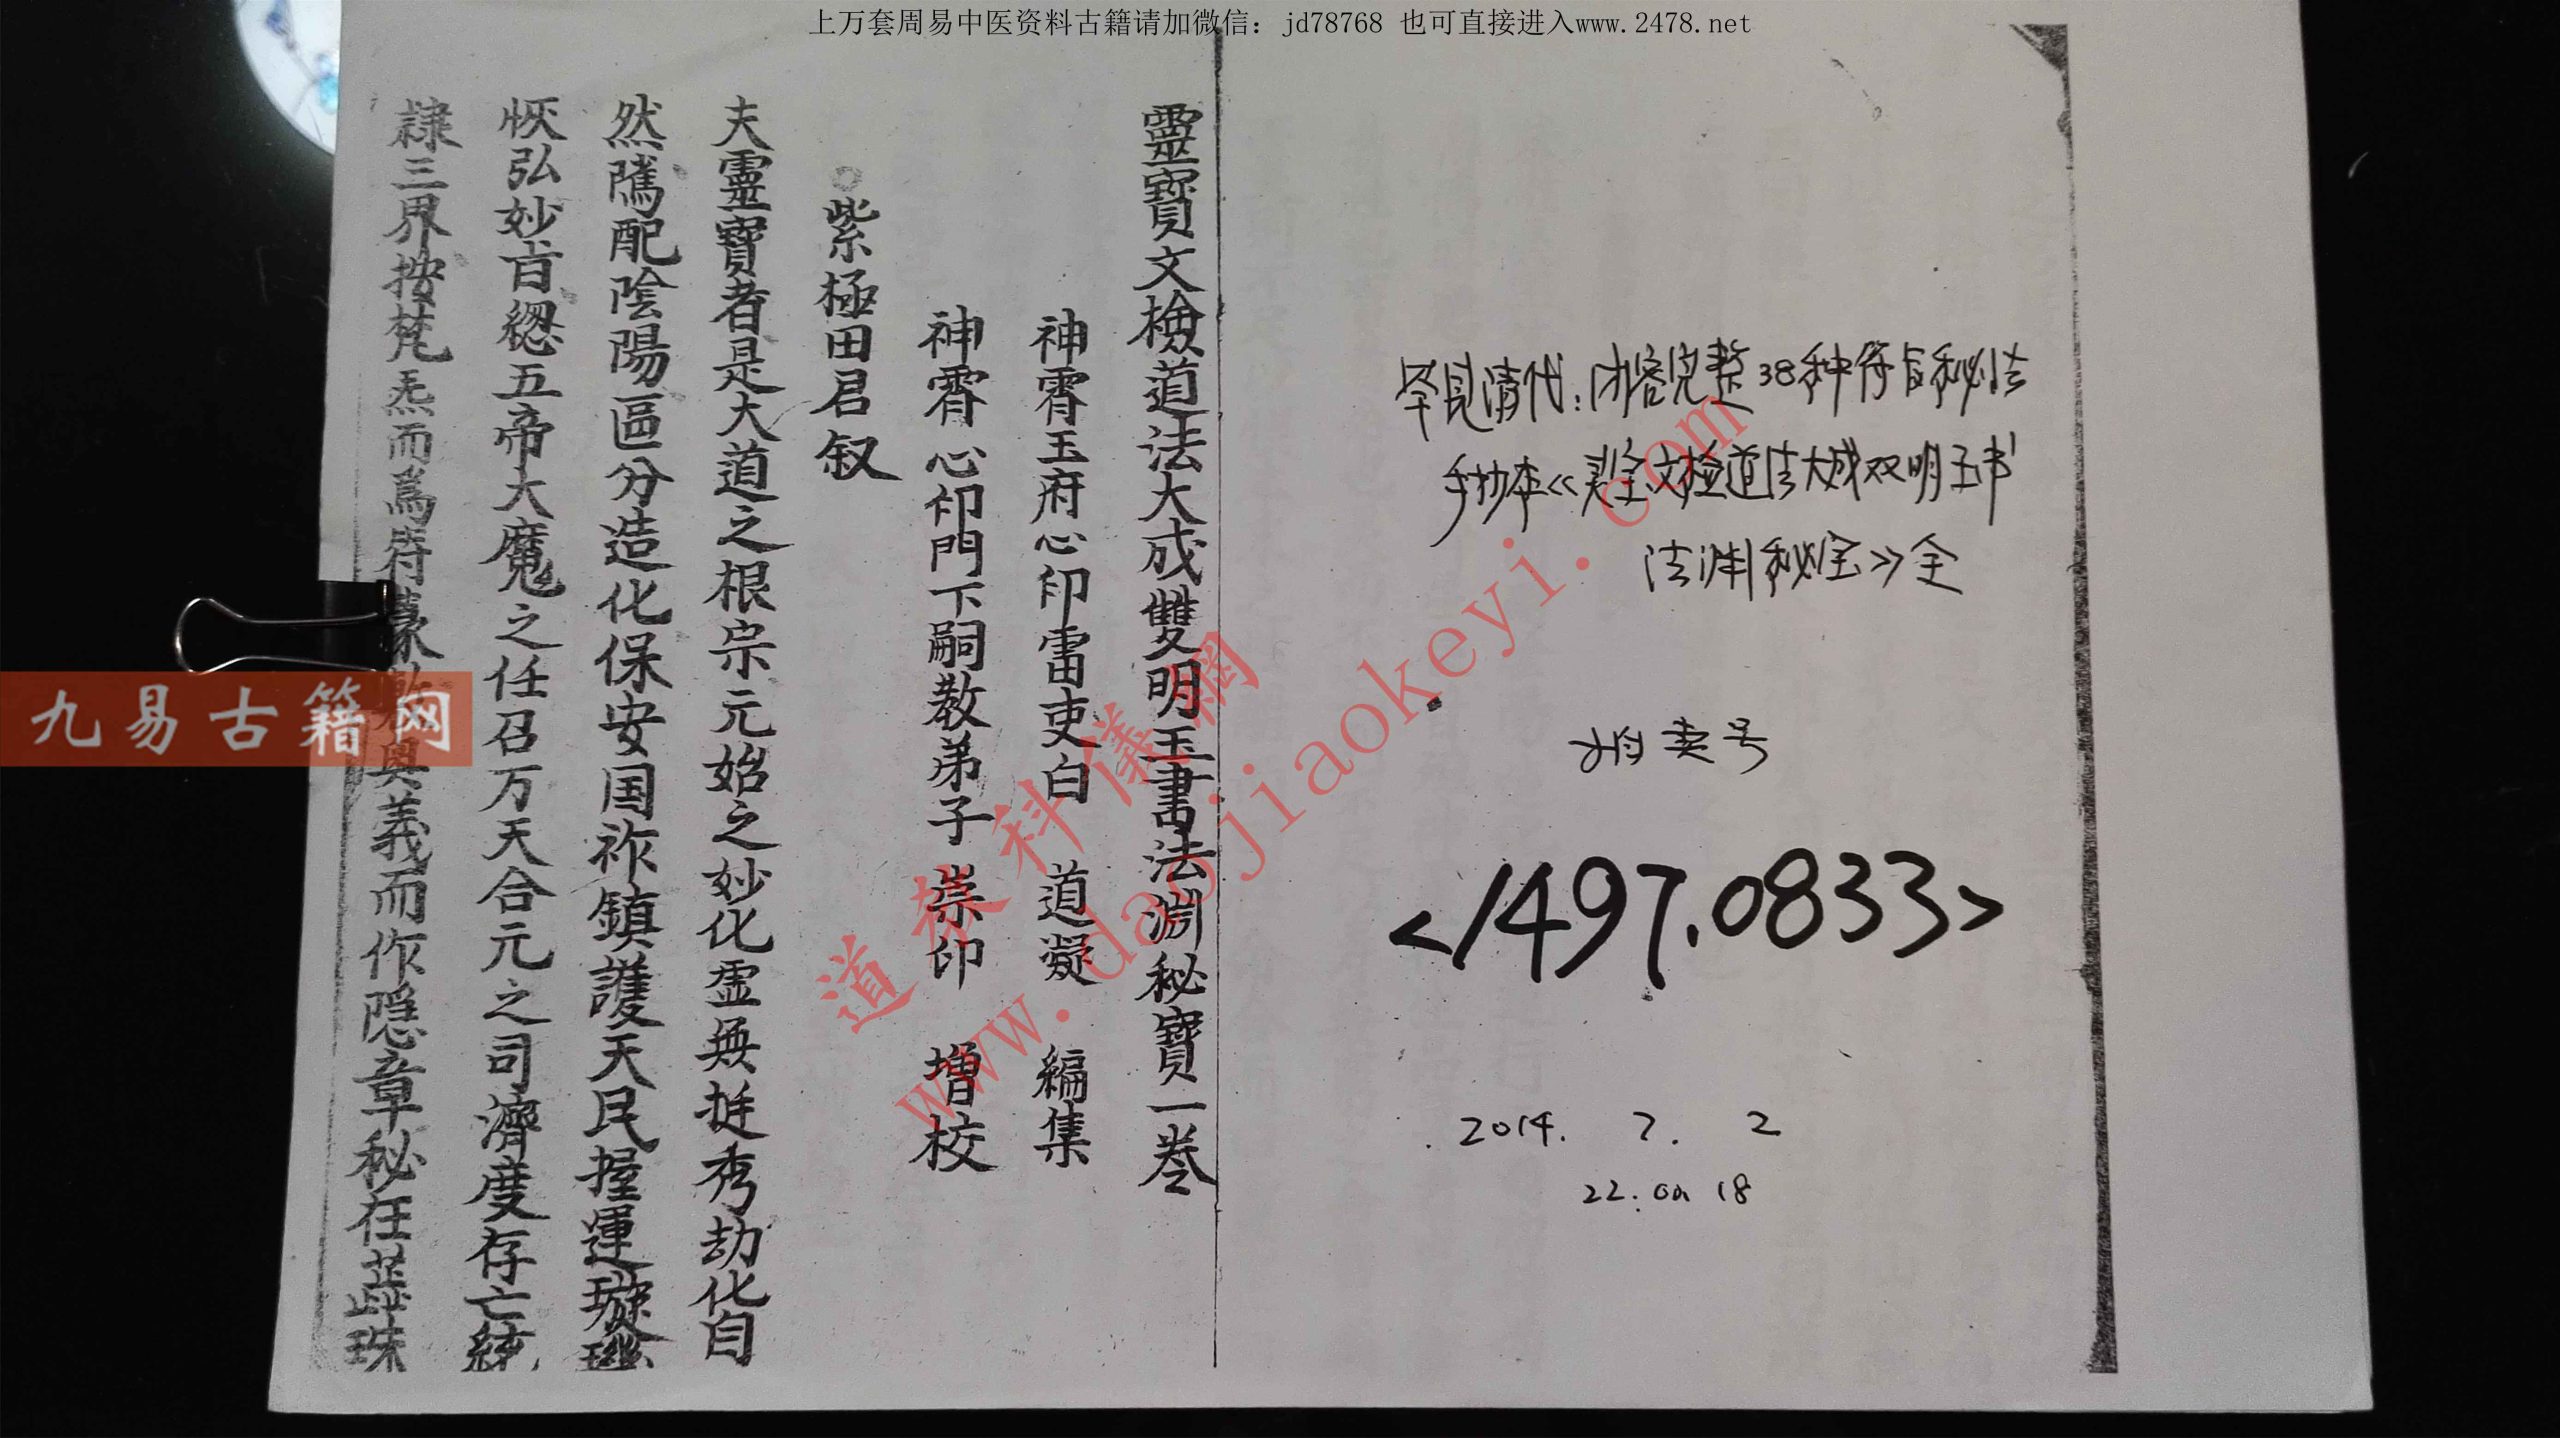 上万套周易中医资料古籍请加微信：jd78768 也可直接进入www.2478.net
罕见清代：内容完整38种符旨秘法
手抄本《灵宝文检道法大成双明玉书
法渊秘宝》全
拍卖号
<1497.0833>
2014. 7. 2
22. 18
靈寶文檢道法大成雙明玉書法渊秘寶一卷
神霄玉府心印雷吏白 道凝 編集
神霄心印門下嗣教弟子 崇印 增校
紫極田君叙
夫靈寶者是大道之根宗元始之妙化虚無挺秀劫化自
然隲配陰陽區分造化保安国祚鎮護天民握運璇璣
恢弘妙旨總五帝大魔之任召万天合元之司濟度存亡統
隷三界按梵炁而爲符篆奧義而作隠章秘在蕋珠
九易古籍网
道教科儀網
www.daojiaokeyi.com